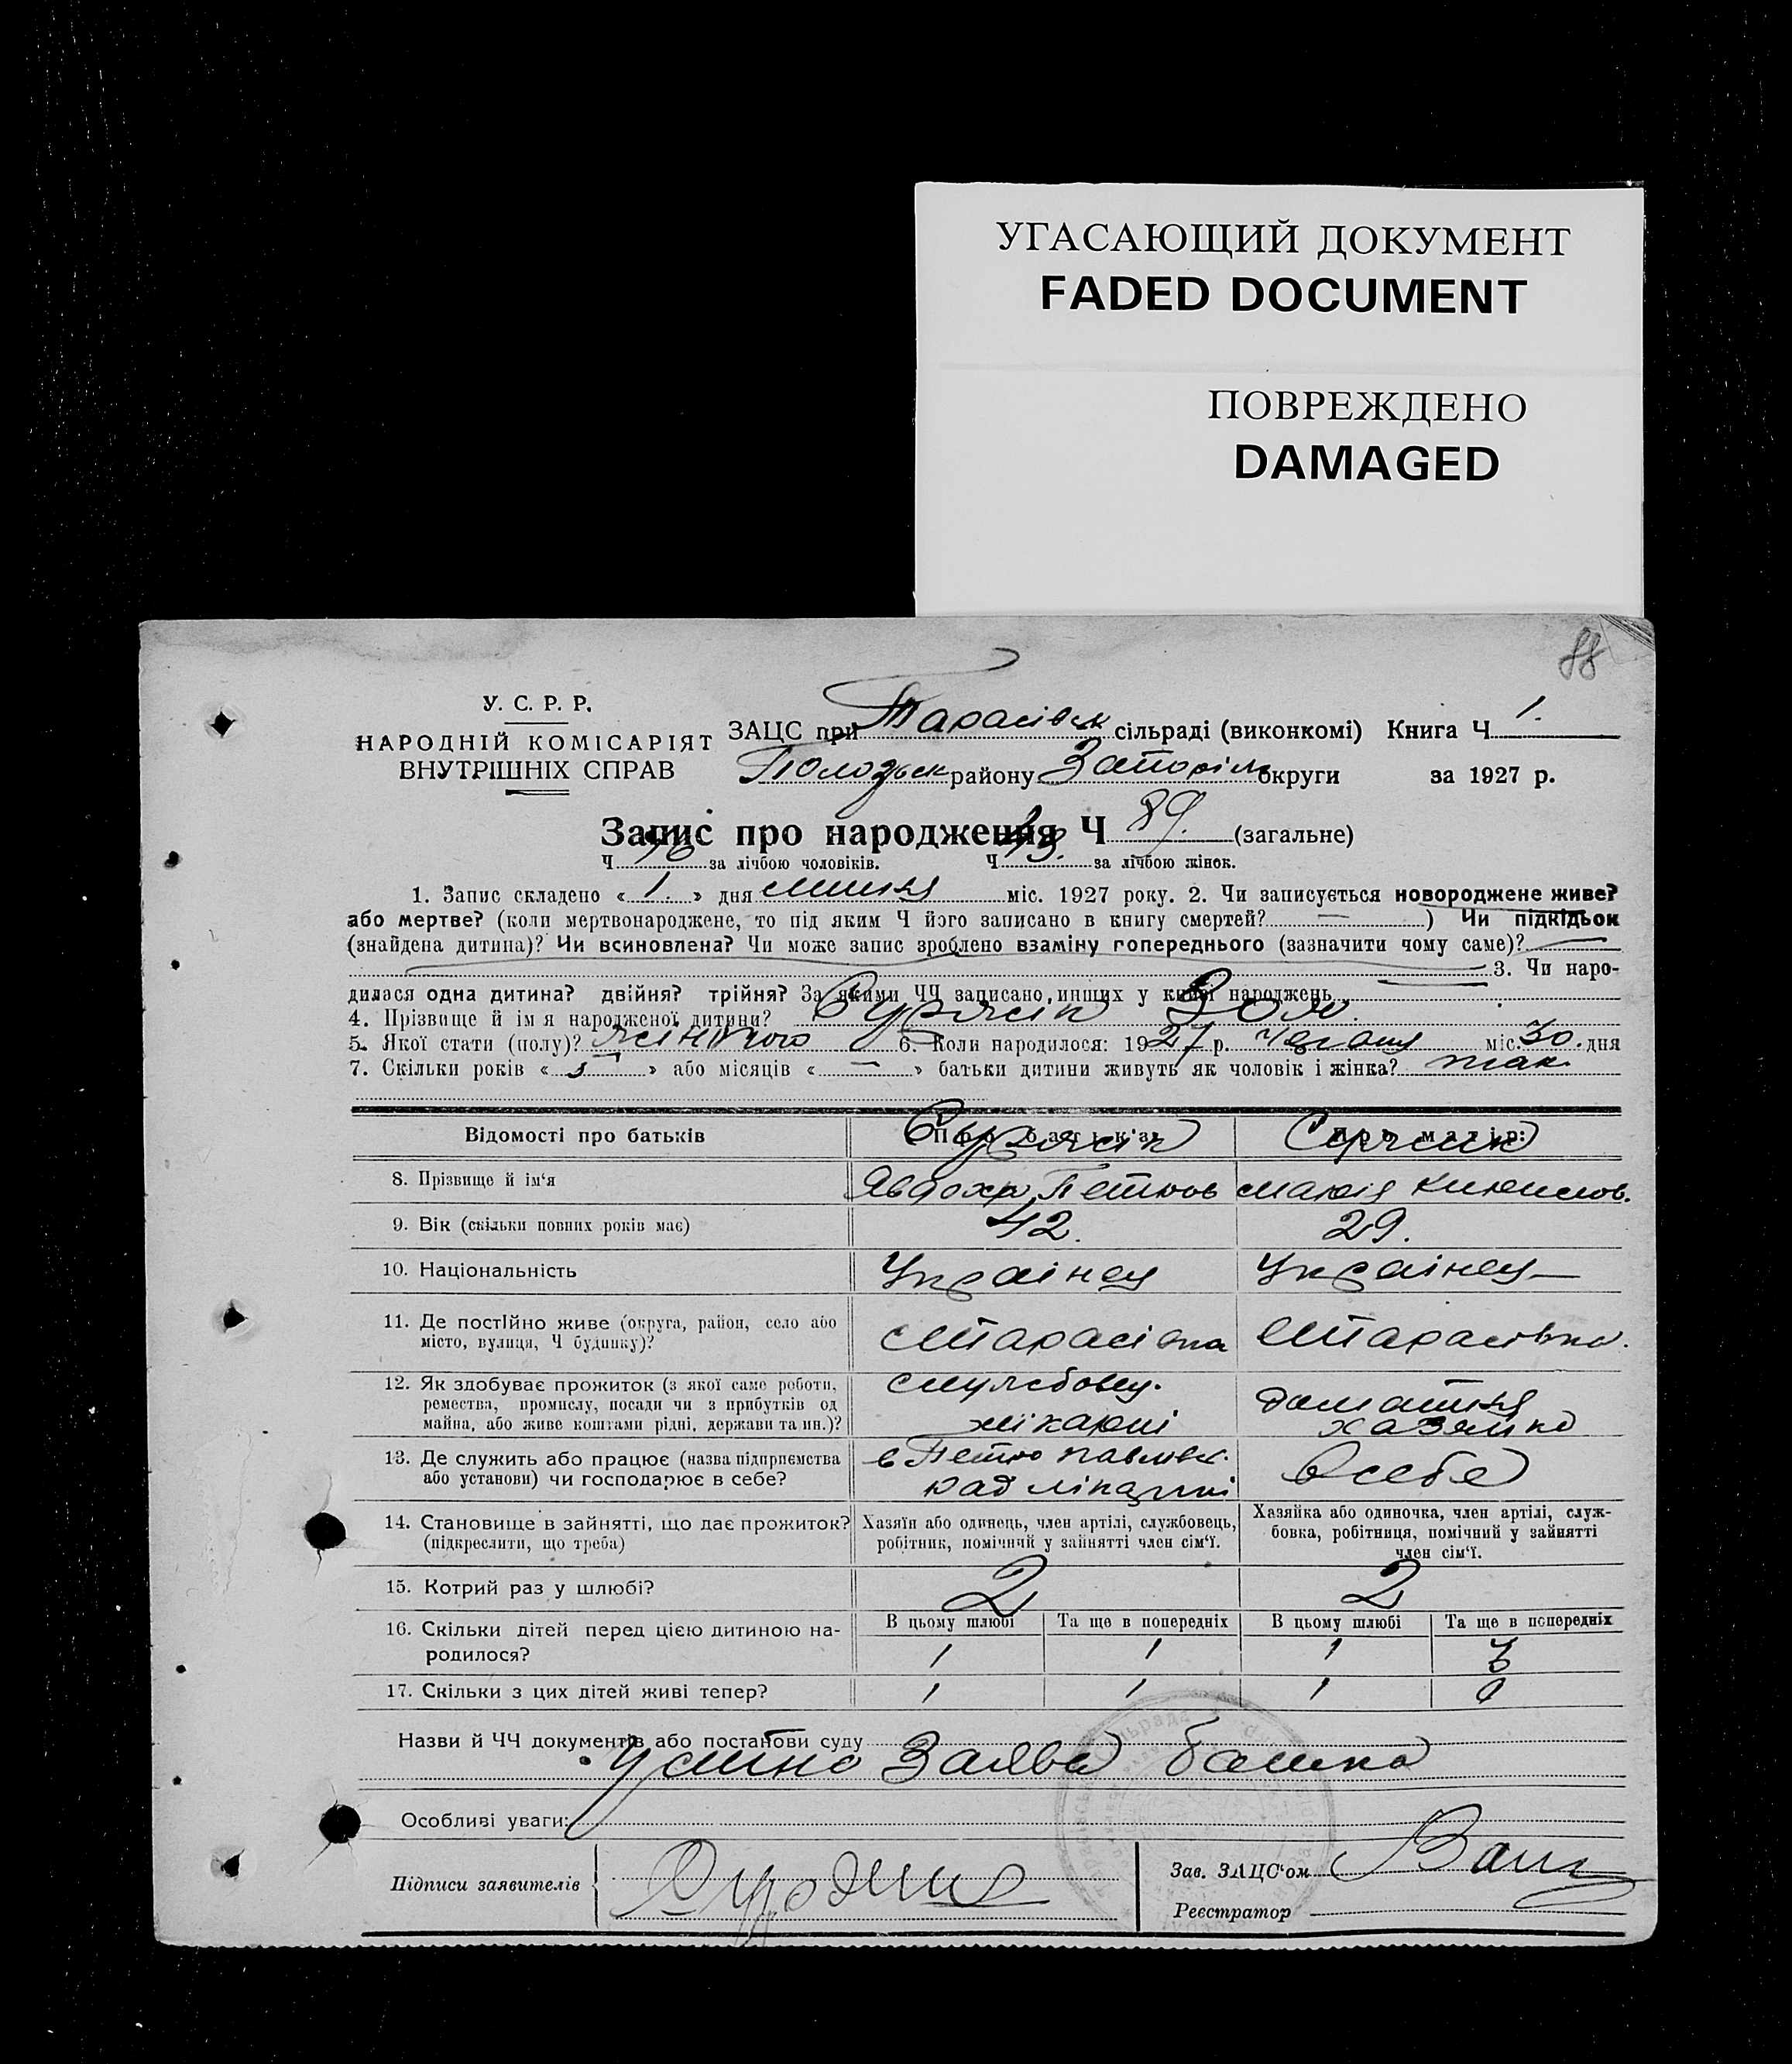 УГАСАЮЩИЙ ДОКУМЕНТ
FADED DOCUMENT
ПОВРЕЖДЕНО
DAMAGED
88
У. С. Р. Р.
НАРОДНІЙ КОМІСАРІЯТ
ВНУТРІШНІХ СПРАВ
ЗАЦС при Тарасівск сільраді (виконкомі) Книга Ч 1.
Пологськ району Запоріж округи за 1927 р.
Запис про народження Ч 89. (загальне)
Ч 46 за лічбою чоловіків. Ч 43. за лічбою жінок.
1. Запис складено « 1. » дня липня міс. 1927 року. 2. Чи записується новороджене живе?
або мертве? (коли мертвонароджене, то під яким Ч його записано в книгу смертей? — ) Чи підкідьок
(знайдена дитина)? Чи всиновлена? Чи може запис зроблено взаміну гопереднього (зазначити чому саме)? —
3. Чи наро-
дилася одна дитина? двійня? трійня? За якими ЧЧ записано инших у книзі народжень
4. Прізвище й ім я народженої дитини? Зоя.
5. Якої стати (полу)? жіночого 6. Коли народилося: 1927 р. Червня міс. 30. дня
7. Скільки років « » або місяців « — » батьки дитини живуть як чоловік і жінка? так
Відомості про батьків Про батька: Про матір:
8. Прізвище й ім'я Петров Марія
9. Вік (скільки повних років має) 42. 29.
10. Національність Украінец Украінец
11. Де постійно живе (округа, район, село або
місто, вулиця, Ч будинку)? с Тарасівка с Тарасівка.
12. Як здобуває прожиток (з якої саме роботи,
ремества, промислу, посади чи з прибутків од
майна, або живе коштами рідні, держави та ин.)? домашня хазяйка
13. Де служить або працює (назва підприємства
або установи) чи господарює в себе? в Петро Павловк. В себе
14. Становище в зайнятті, що дає прожиток?
(підкреслити, що треба)
Хазяїн або одинець, член артілі, службовець,
робітник, помічний у зайнятті член сім'ї.
Хазяйка або одиночка, член артілі, служ-
бовка, робітниця, помічний у зайнятті
член сім'ї.
15. Котрий раз у шлюбі? 2 2
16. Скільки дітей перед цією дитиною на-
родилося?
В цьому шлюбі Та ще в попередніх В цьому шлюбі Та ще в попередніх
1 1 1
17. Скільки з цих дітей живі тепер? 1 1 1
Назви й ЧЧ документів або постанови суду
Устно Заява батька
Особливі уваги:
Підписи заявителів
Зав. ЗАЦС'ом
Реєстратор